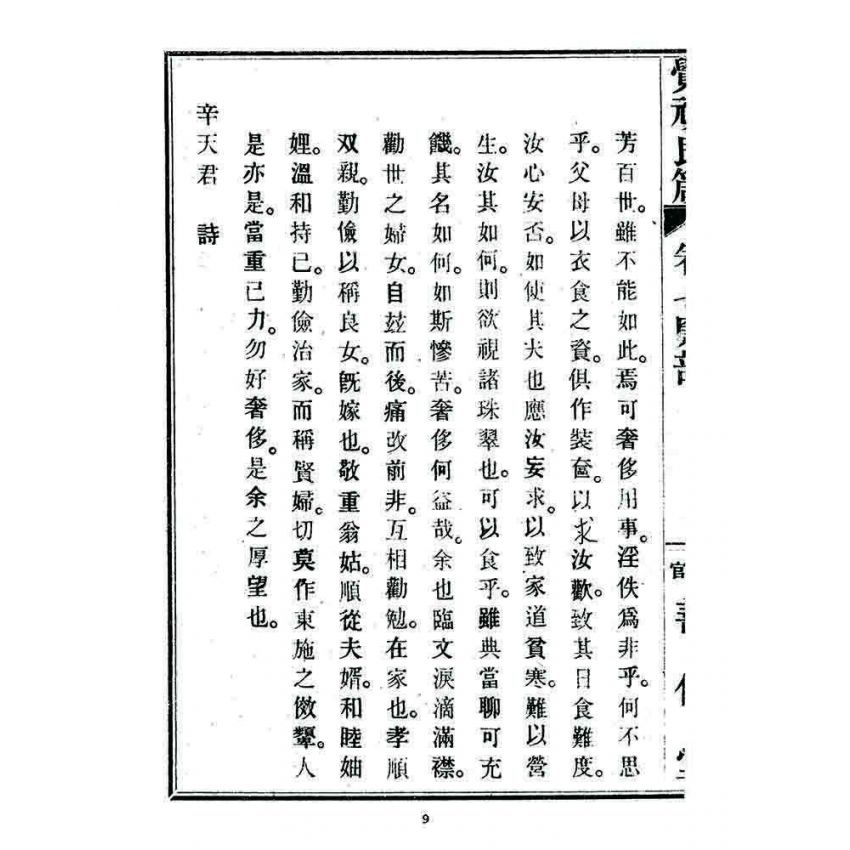 覺
卷七
官
芳百世。雖不能如此。焉可奢侈用事。淫佚爲非乎。何不思
乎。父母以衣食之資。俱作裝奩。以求汝歡。致其日食難度。
汝心安否。如使其夫也應汝妄求。以致家道貧寒。難以營
生。汝其如何。則欲視諸珠翠也。可以食乎。雖典當聊可充
饑。其名如何。如斯慘苦。奢侈何益哉。余也臨文淚滴滿襟。
勸世之婦女。自玆而後。痛改前非。互相勸勉。在家也。孝順
双親。勤儉以稱良女。旣嫁也。敬重翁姑。順從夫婿。和睦妯
娌。溫和持己。勤儉治家。而稱賢婦。切莫作東施之傚顰。人
是亦是。當重己力。勿好奢侈。是余之厚望也。
辛天君 詩
9